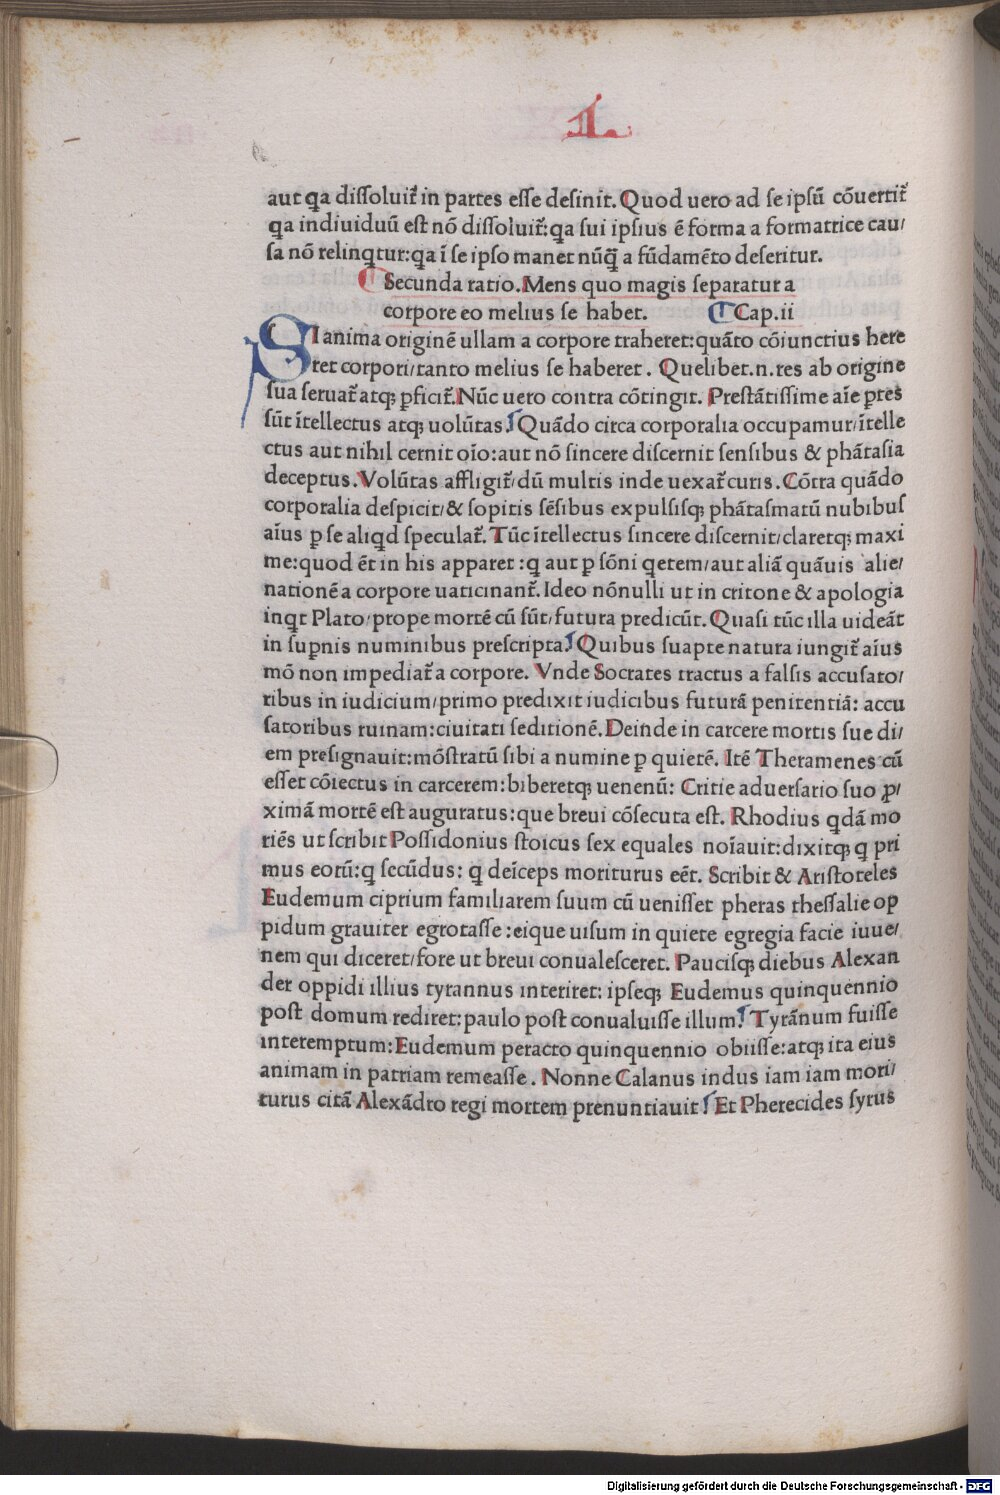 L
aut qa dissoluit᷑ in partes esse desinit. Quod uero ad se ipsū cōuertit᷑
qa indiuiduū est nō dissoluit᷑: qa sui ipsius ē forma a formatrice cau/
sa nō relinqtur: qa ī se ipso manet nūq̄ a fūdamēto deseritur.
Secunda ratio. Mens quo magis separatur a
corpore eo melius se habet. Cap. ii
SI anima originē ullam a corpore traheret: quāto cōiunctius here
ret corpori/ tanto melius se haberet. Quelibet .n. res ab origine
sua seruat᷑ atqꝫ ꝑficit᷑. Nūc uero contra cōtingit. Prestātissime aīe ꝑtes
sūt ītellectus atqꝫ uolūtas. Quādo circa corporalia occupamur/ ītelle
ctus aut nihil cernit oīo: aut nō sincere discernit sensibus & phātasia
deceptus. Volūtas affligit᷑/ dū multis inde uexat᷑ curis. Cōtra quādo
corporalia despicit/ & sopitis sēsibus expulsisqꝫ phātasmatū nubibus
aīus ꝑ se aliqd speculat᷑. Tūc ītellectus sincere discernit/ claretqꝫ maxi
me: quod ēt in his apparet: q aut ꝑ sōni qetem/ aut aliā quāuis alie/
nationē a corpore uaticinant᷑. Ideo nōnulli ut in critone & apologia
inqt Plato/ prope mortē cū sūt/ futura predicūt. Quasi tūc illa uideāt
in suꝑnis numinibus prescripta. Quibus suapte natura iungit᷑ aīus
mō non impediat᷑ a corpore. Vnde Socrates tractus a falsis accusato/
ribus in iudicium/ primo predixit iudicibus futurā penitentiā: accu
satoribus ruinam: ciuitati seditionē. Deinde in carcere mortis sue di/
em presignauit: mōstratū sibi a numine ꝑ quietē. Itē Theramenes cū
esset cōiectus in carcerem: biberetqꝫ uenenū: Critie aduersario suo ꝓ/
ximā mortē est auguratus: que breui cōsecuta est. Rhodius qdā mo
riēs ut scribit Possidonius stoicus sex equales noīauit: dixitqꝫ q pri
mus eorū: q secūdus: q deīceps moriturus eēt. Scribit & Aristoteles
Eudemum ciprium familiarem suum cū uenisset pheras thessalie op
pidum grauiter egrotasse: eique uisum in quiete egregia facie iuue/
nem qui diceret/ fore ut breui conualesceret. Paucisqꝫ diebus Alexan
der oppidi illius tyrannus interiret: ipseqꝫ Eudemus quinquennio
post domum rediret: paulo post conualuisse illum. Tyrānum fuisse
interemptum: Eudemum peracto quinquennio obiisse: atqꝫ ita eius
animam in patriam remeasse. Nonne Calanus indus iam iam mori/
turus citā Alexādro regi mortem prenuntiauit Et Pherecides syrus
Digitalisierung gefördert durch die Deutsche Forschungsgemeinschaft - DFG